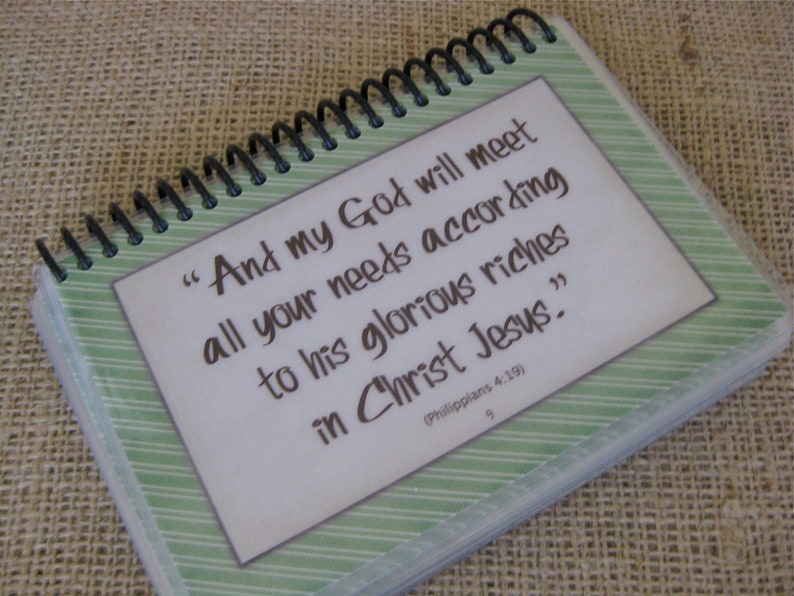 “And my God will meet
all your needs according
to his glorious riches
in Christ Jesus.”
(Philippians 4:19)
9